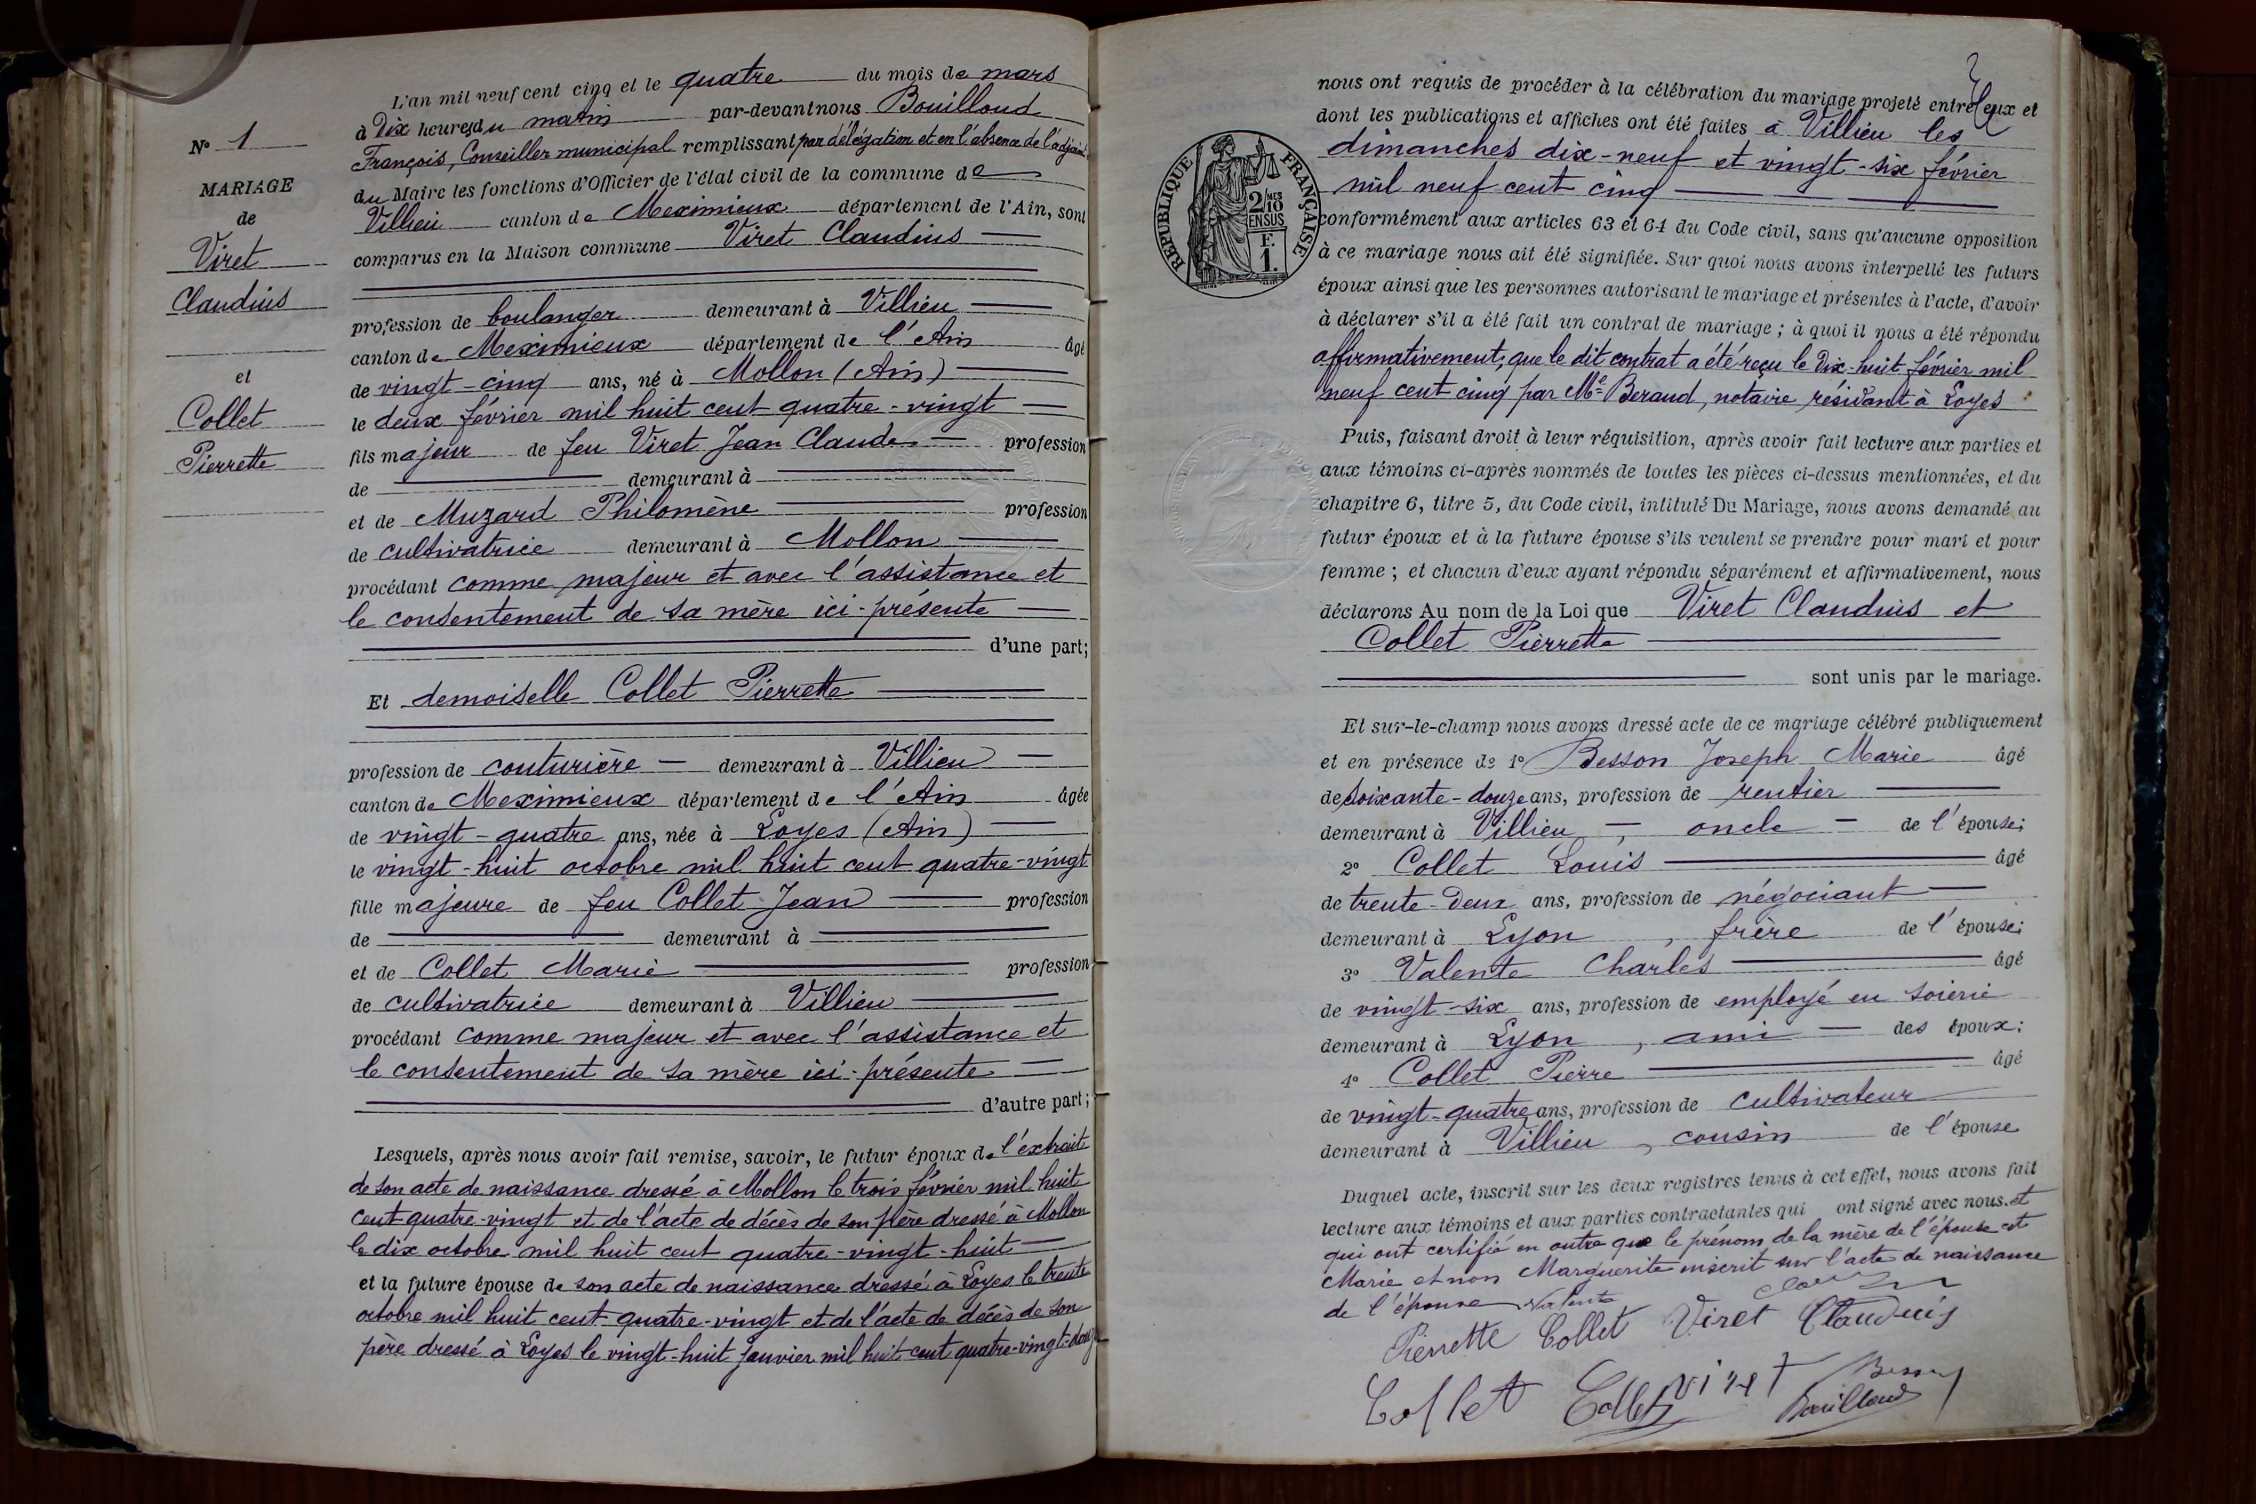 L'an mil neuf cent cinq et le quatre du mois de mars
à Dix heures du matin par-devant nous Bouilloud
François, Conseiller municipal remplissant par délégation et en l'absence de l'adjoint
du Maire les fonctions d'Officier de l'état civil de la commune de
Villieu canton de Meximieux département de l'Ain, sont
comparus en la Maison commune Viret Claudius
profession de boulanger demeurant à Villieu
canton de Meximieux département de l'Ain âgé
de vingt-cinq ans, né à Mollon (Ain)
le deux février mil huit cent quatre-vingt
fils majeur de feu Viret Jean Claude profession
de demeurant à
et de Muzard Philomène profession
de cultivatrice demeurant à Mollon
procédant comme majeur et avec l'assistance et
le consentement de sa mère ici-présente
d'une part;
Et demoiselle Collet Pierrette
profession de couturière demeurant à Villieu
canton de Meximieux département de l'Ain âgée
de vingt-quatre ans, née à Loyes (Ain)
le vingt-huit octobre mil huit cent quatre-vingt
fille majeure de feu Collet Jean profession
de demeurant à
et de Collet Marie profession
de cultivatrice demeurant à Villieu
procédant comme majeur et avec l'assistance et
le consentement de sa mère ici-présente
d'autre part;
Lesquels, après nous avoir fait remise, savoir, le futur époux de l'extrait
de son acte de naissance dressé à Mollon le trois février mil huit
cent quatre-vingt et de l'acte de décès de son père dressé à Mollon
le dix octobre mil huit cent quatre-vingt-huit
et la future épouse de son acte de naissance dressé à Loyes le trente
octobre mil huit cent quatre-vingt et de l'acte de décès de son
père dressé à Loyes le vingt-huit janvier mil huit cent quatre-vingt-douze
N° 1
MARIAGE
de
Viret
Claudius
et
Collet
Pierrette
nous ont requis de procéder à la célébration du mariage projeté entre eux et
dont les publications et affiches ont été faites à Villieu les
dimanches dix-neuf et vingt-six février
mil neuf cent cinq
conformément aux articles 63 et 64 du Code civil, sans qu'aucune opposition
à ce mariage nous ait été signifiée. Sur quoi nous avons interpellé les futurs
époux ainsi que les personnes autorisant le mariage et présentes à l'acte, d'avoir
à déclarer s'il a été fait un contrat de mariage; à quoi il nous a été répondu
affirmativement; que le dit contrat a été reçu le Dix-huit février mil
neuf cent cinq par Me Beraud, notaire résidant à Loyes
Puis, faisant droit à leur réquisition, après avoir fait lecture aux parties et
aux témoins ci-après nommés de toutes les pièces ci-dessus mentionnées, et du
chapitre 6, titre 5, du Code civil, intitulé Du Mariage, nous avons demandé au
futur époux et à la future épouse s'ils veulent se prendre pour mari et pour
femme; et chacun d'eux ayant répondu séparément et affirmativement, nous
déclarons Au nom de la Loi que Viret Claudius et
Collet Pierrette
sont unis par le mariage.
Et sur-le-champ nous avons dressé acte de ce mariage célébré publiquement
et en présence de 1° Besson Joseph Marie âgé
de soixante-douze ans, profession de rentier
demeurant à Villieu, oncle de l'épouse;
2° Collet Louis âgé
de trente-deux ans, profession de négociant
demeurant à Lyon, frère de l'épouse;
3° Valente Charles âgé
de vingt-six ans, profession de employé en soierie
demeurant à Lyon, ami des époux;
4° Collet Pierre âgé
de vingt-quatre ans, profession de cultivateur
demeurant à Villieu, cousin de l'épouse
Duquel acte, inscrit sur les deux registres tenus à cet effet, nous avons fait
lecture aux témoins et aux parties contractantes qui ont signé avec nous et
qui ont certifié en outre que le prénom de la mère de l'épouse est
Marie et non Marguerite inscrit sur l'acte de naissance
de l'épouse Valente
Pierrette Collet Viret Claudius
Collet Collet Viret Besson
Bouilloud
RÉPUBLIQUE FRANÇAISE
2/10MES
EN SUS
F.
1.